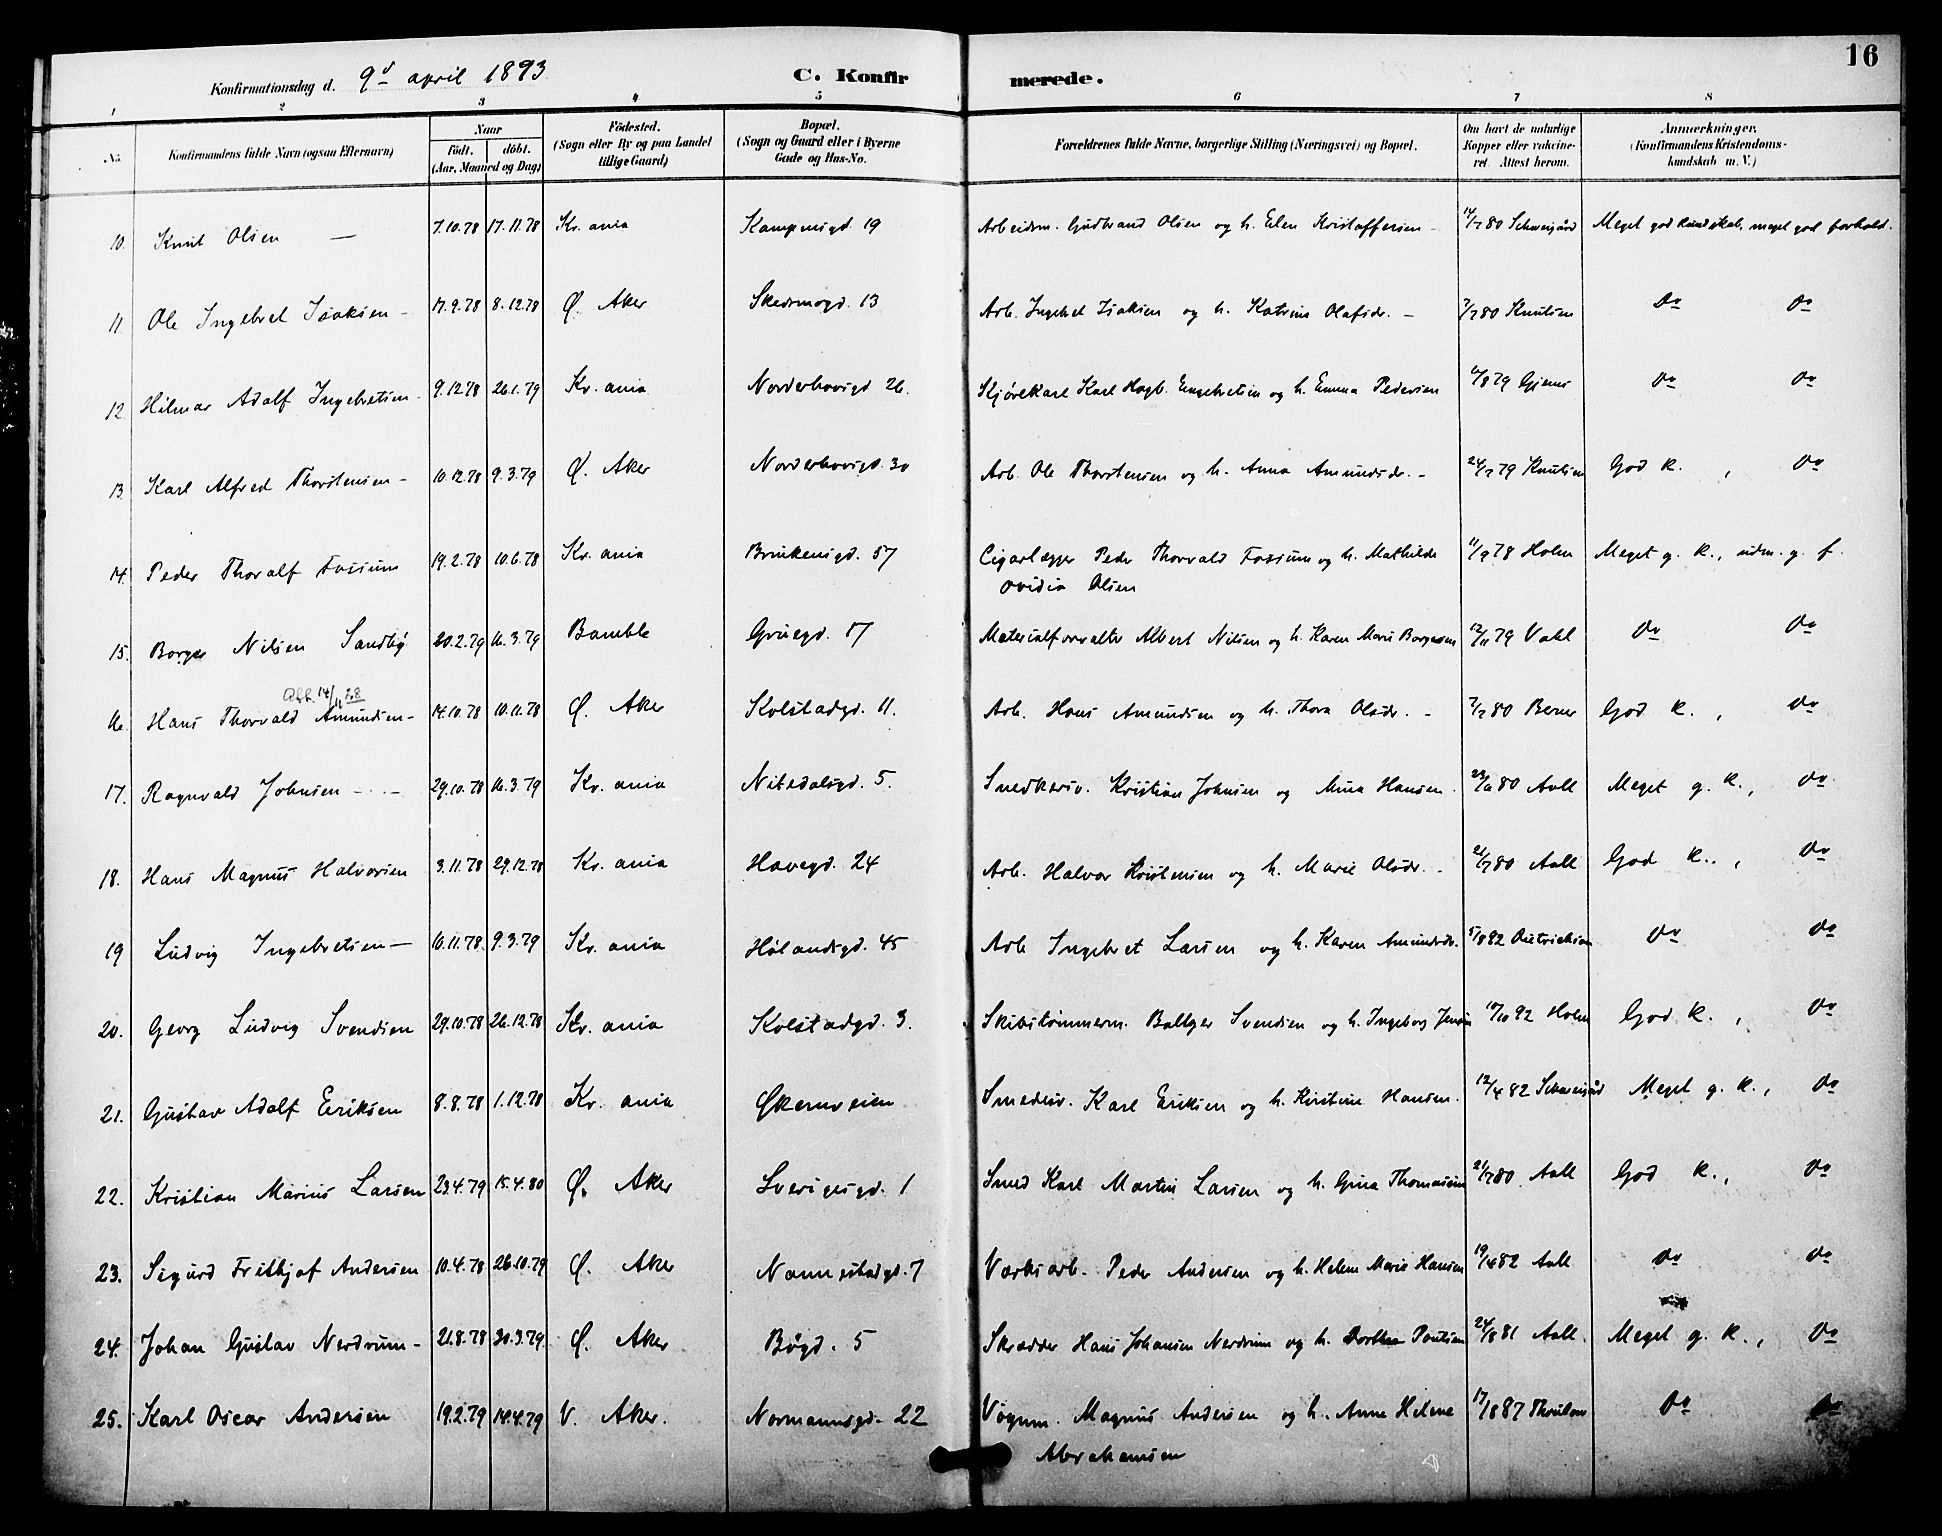 16
Konfirmationsdag d. 9d april 1893 C. Konfirmerede.
1 2 3 4 5 6 7 8
No. Konfirmandens fulde Navn (ogsaa Efternavn) Naar Født. døbt. (Aar, Maaned og Dag) Fødested. (Sogn eller By og paa Landet tillige Gaard) Bopæl. (Sogn og Gaard eller i Byerne Gade og Hus-No. Forældrenes fulde Navne, borgerlige Stilling (Næringsvei) og Bopæl. Om havt de naturlige Kopper eller vakcineret. Attest herom. Anmærkninger. (Konfirmandens Kristendomskundskab m. V.)
10. Knut Olsen — 7.10.78 17.11.78 Kr.ania Kampensgd 19 Arbeidsm. Gudbrand Olsen og h. Elen Kristoffersen - 14/7 80 Schweigård Meget god kundskab, meget god forhold.
11. Ole Ingebret Isaksen - 17.9.78 8.12.78 Ø. Aker Skedsmogd. 13 Arb. Ingebret Isaksen og h. Katrine Olafsdr. - 7/7 80 Knutsen do do
12. Hilmar Adolf Ingebretsen 9.12.78 26.1.79 Kr.ania Norderhovsgd 26. Kjørekarl Karl Hagb. Engebretsen og h. Emma Pedersen 6/8 79 Gjems do do
13. Karl Alfred Thorstensen - 10.12.78 9.3.79 Ø. Aker Norderhovsgd. 30 Arb. Ole Thorstensen og h. Anna Amundsdr. - 24/7 79 Knutsen God k. , do
14. Peder Thoralf Fossum 19.2.78 10.6.78 Kr.ania Brinkensgd. 57 Cigarlægger Peder Thorvald Fossum og h. Mathilde 11/9 78 Holm Meget g. k., udm. g. f.
Ovidia Olsen
15. Borger Nilsen Sandby 20.2.79 16.3.79 Bamble Gruegd. 17 Materialforvalter Albert Nilsen og h. Karen Marie Borgesen 12/11 79 Vahl do do
14/11 28
16. Hans Thorvald Amundsen - 14.10.78 10.11.78 Ø. Aker Kolstadgd. 11. Arb. Hans Amundsen og h. Thora Olsdr. - 7/7 80 Berner God k. , do
17. Ragnvald Johnsen - - 29.10.78 16.3.79 Kr.ania Nitedalsgd. 5. Snedkersv. Kristian Johnsen og Mina Hansen. Aall Meget g. k., do
18. Hans Magnus Halvorsen 3.11.78 29.12.78 Kr.ania Havegd. 24 Arb. Halvor Kristensen og h. Marie Olsdr. - 21/7 80 Aall God k. , do
19 Ludvig Ingebretsen — 16.11.78 9.3.79 Kr.ania Hølandsgd. 45 Arb Ingebret Larsen og h. Karen Amundsdr. 5/8 82 Dietrichson do do
20. Georg Ludvig Svendsen 29.10.78 26.12.78 Kr.ania Kolstadgd. 3. Skibstømmerm. Svendsen og h. Ingeborg Jensen 10/10 92 Holm God k. , do
21. Gustav Adolf Eriksen 8.8.78 1.12.78 Kr.ania Økernveien Smedesv. Karl Eriksen og h. Kirstine Hansen. 12/4 82 Schweigård Meget g. k., do
22. Kristian Marius Larsen 23.4.79 15.4.80 Ø. Aker Sverigesgd. 1 Smed Karl Martin Larsen og h. Gina Thomassen 21/7 80 Aall God k. , do
23. Sigurd Frithjof Andersen 10.4.78 26.10.79 Ø. Aker Nannestadgd. 7 Værksarb. Peder Andersen og h. Helene Marie Hansen 19/4 82 Aall do do
24. Johan Gustav Nerdrum - 21.8.78 30.3.79 Ø. Aker Bøgd. 5 Skrædder Hans Johansen Nerdrum og h. Dorthea Poulsen 24/8 81 Aall. Meget g. k., do
25. Karl Oscar Andersen 19.2.79 14.4.79 V. Aker. Normannsgd. 22 Vognm. Magnus Andersen og h. Anne Helene 17/10 87 Thoulow do do
Abrahamsen